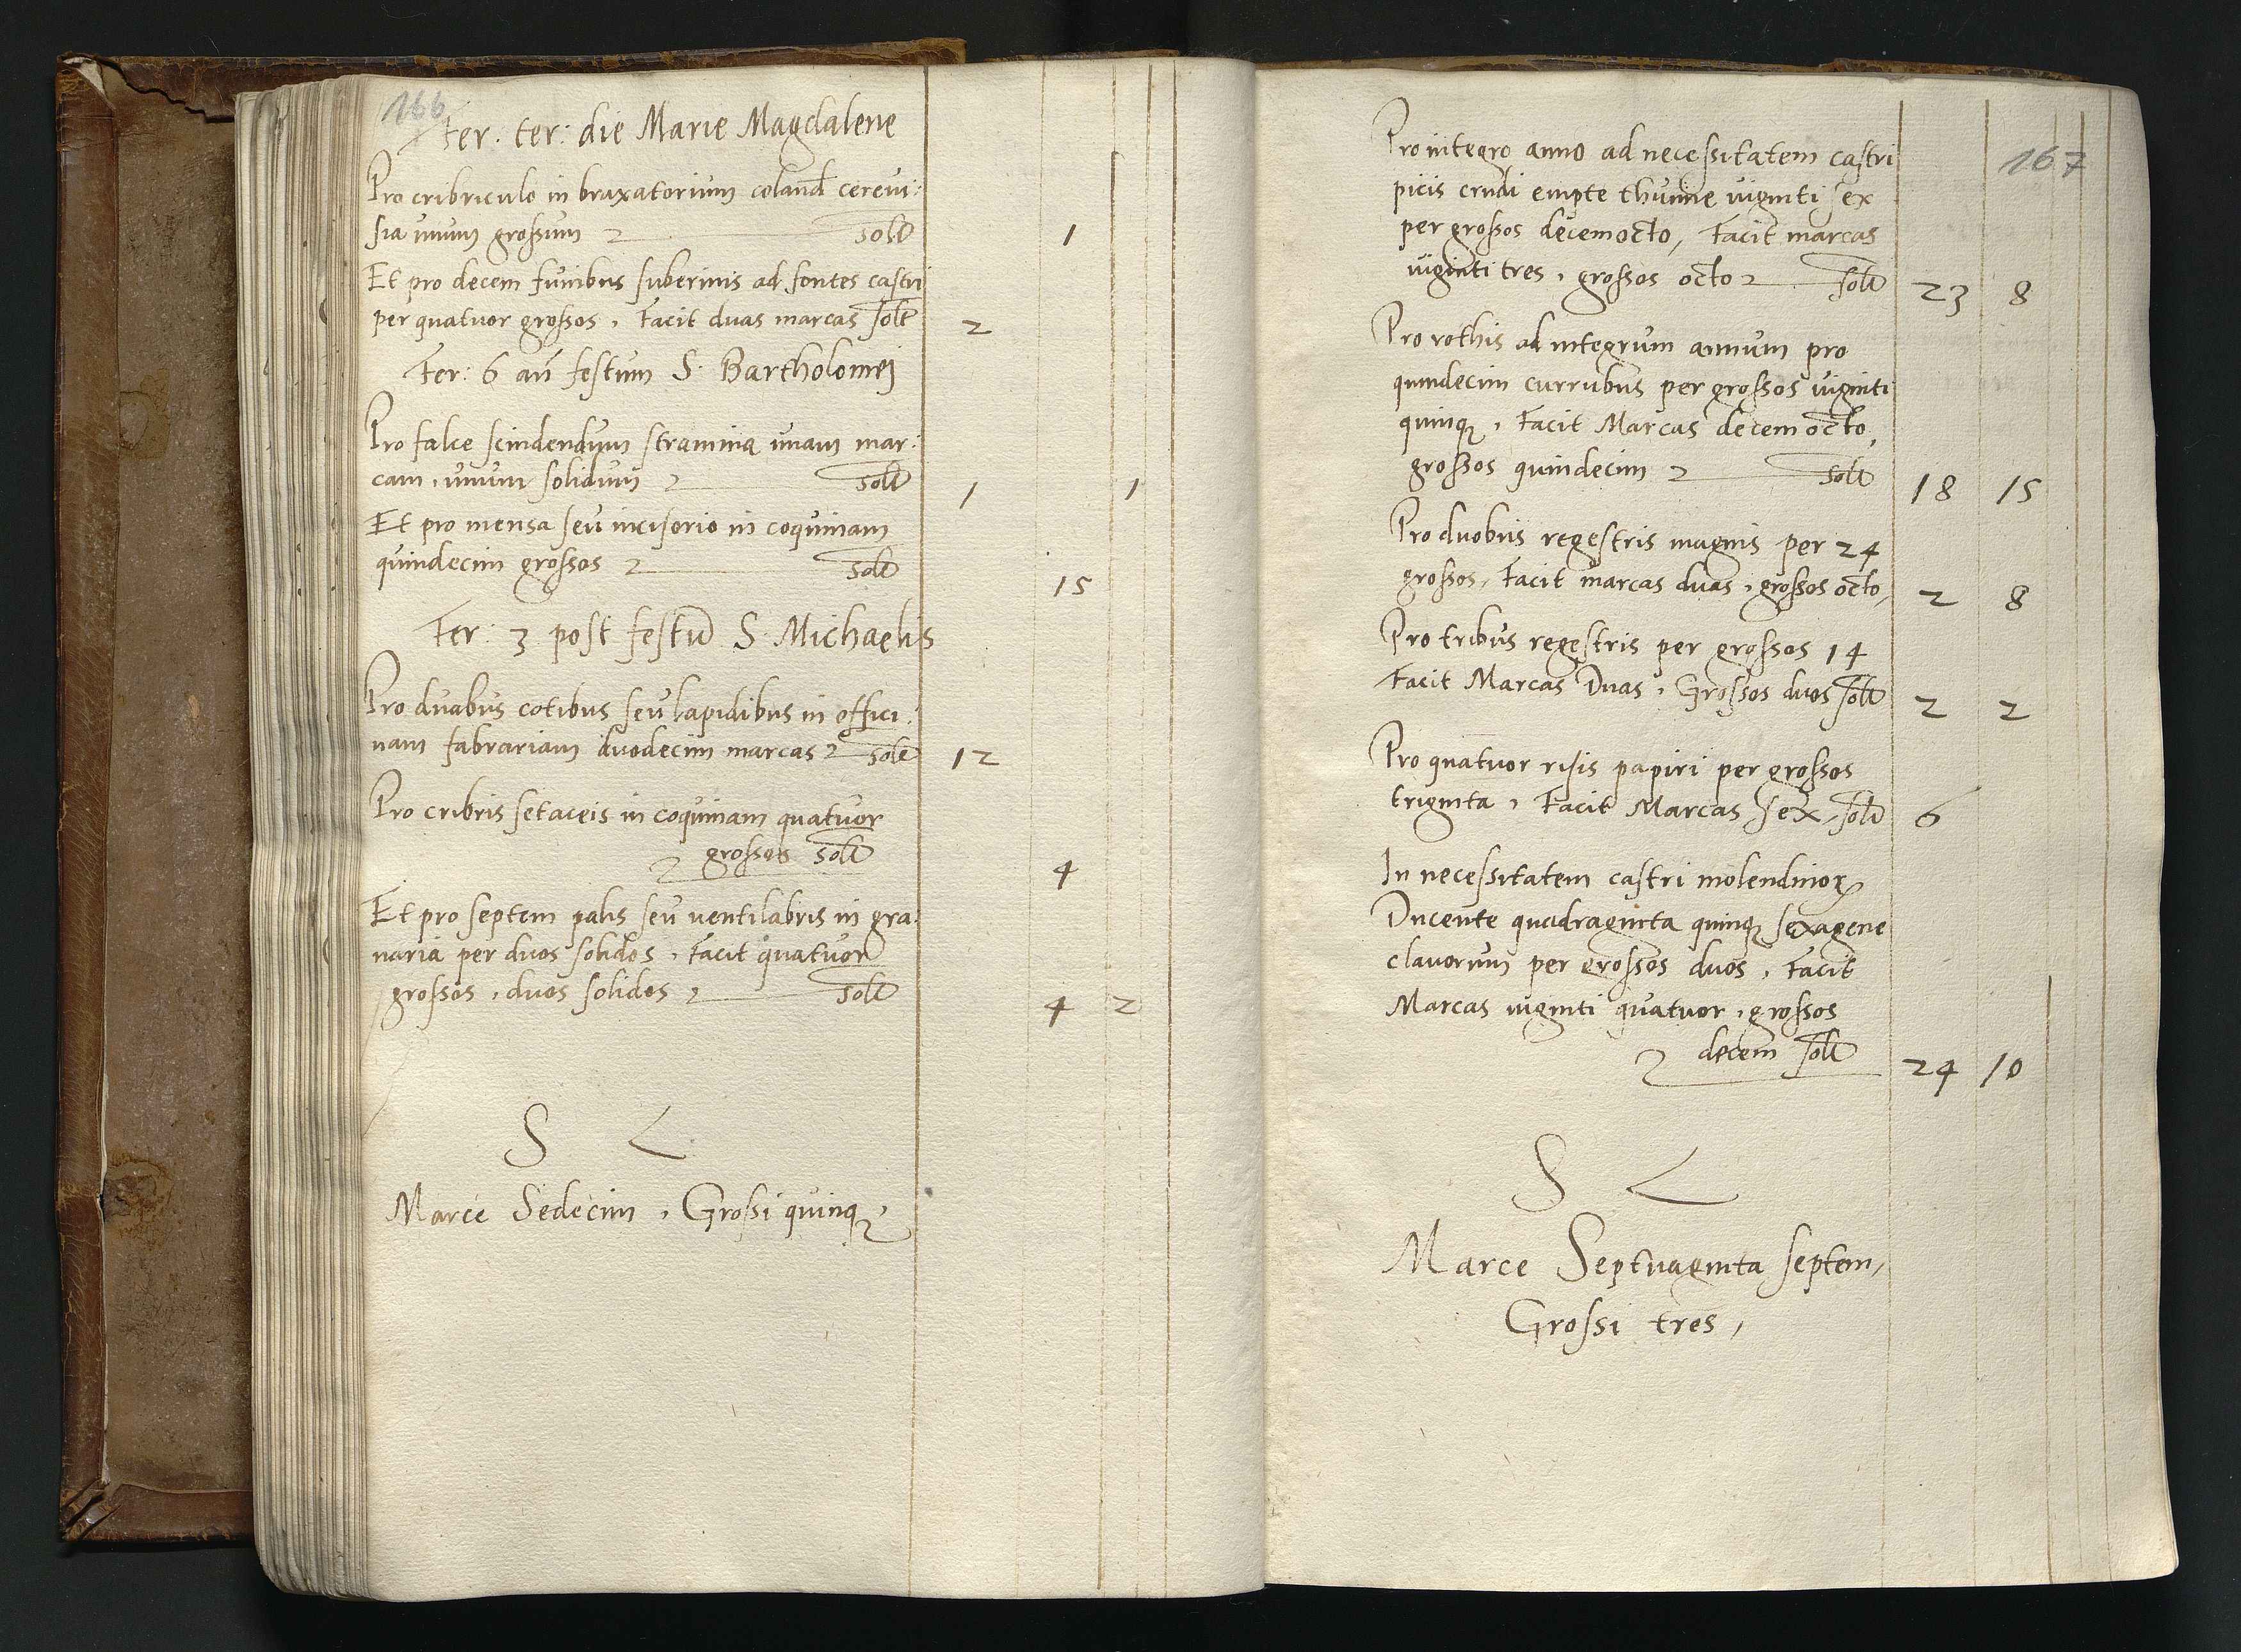 166
Fer. ter: die Marie Magdalene
Pro cribriculo in braxatorium coland cerevi:
sia unum grossum solt 1
Et pro decem funibus suberinis ad fontes castri
per quatuor grossos, Facit duas marcas solt 2
Fer: 6 an festum S. Bartholomej
Pro falce scindendum stramina unam mar:
cam, unum solidum solt 1 1
Et pro mensa seu incisorio in coquinam
quindecim grossos solt 15
Fer: 3 post festu S. Michaelis
Pro duabus cotibus seu lapidibus in offici:
nam fabrariam duodecim marcas solt 12
Pro cribris setaceis in coquinam quatuor
grossos solt 4
Et pro septem palis seu ventilabris in gra:
naria per duos solidos, Facit quatuor
grossos, duos solidos, solt 4 2
S
Marce Sedecim, Grossi quinq,
167
Pro integro anno ad necessitatem castri
picis crudi empte thunne viginti sex
per grossos decemocto, Facit marcas
viginti tres, grossos octo solt 23 8
Pro rothis ad integrum annum pro
quindecim curribus per grossos viginti
quinq, Facit Marcas decemocto,
grossos quindecim solt 18 15
Pro duobus regestris magnis per 24
grossos, Facit marcas duas, grossos octo, 2 8
Pro tribus regestris per grossos 14
Facit Marcas Duas, Grossos duos solt 2 2
Pro quatuor risis papiri per grossos
triginta, Facit Marcas sex, solt 6
In necessitatem castri molendinor
Ducente quadraginta quinq sexagene
clavorum per grossos duos, Facit
Marcas viginti quatuor, grossos
decem solt 24 10
S
Marce Septuaginta septem,
Grossi tres,